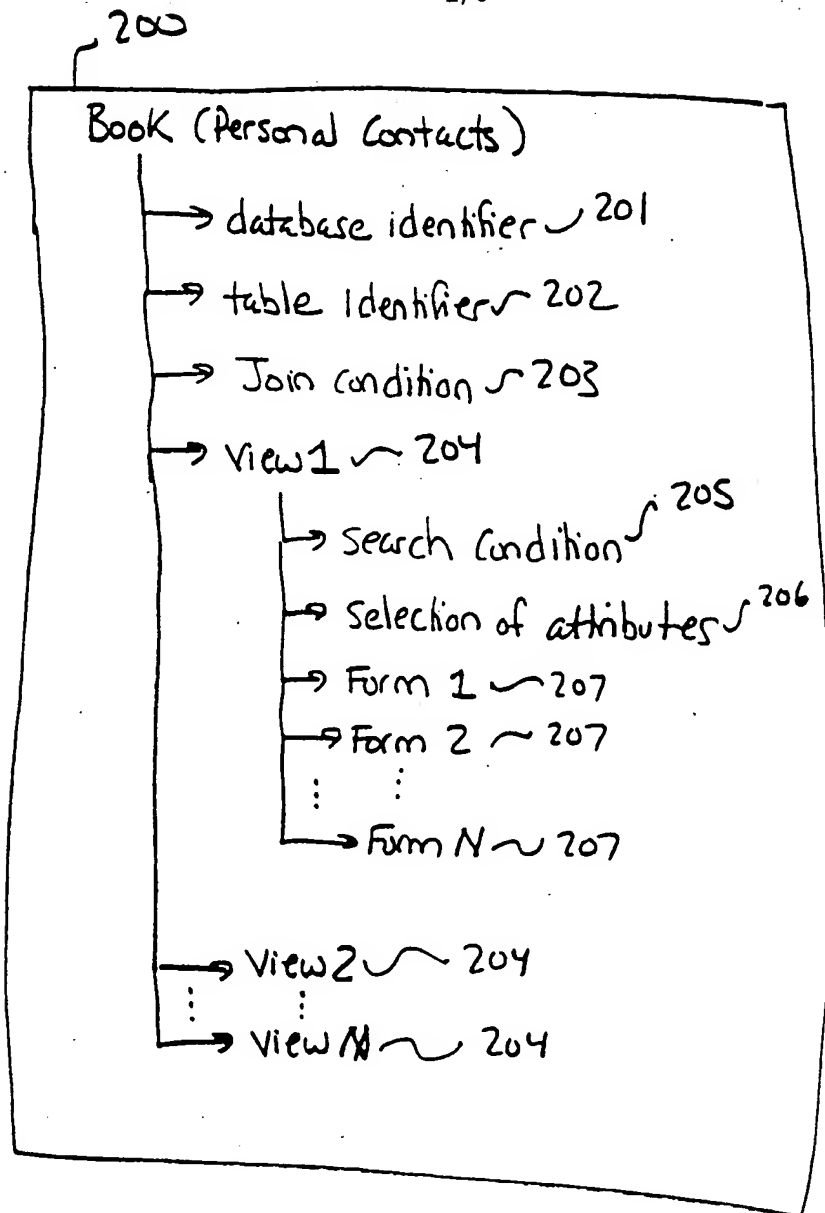 200
Book (Personal Contacts)
database identifier 201
table identifier 202
Join condition 203
View 1 204
Search Condition 205
Selection of attributes 206
Form 1 207
Form 2 207
⋮ ⋮
Form N 207
View 2 204
⋮ ⋮
View N 204